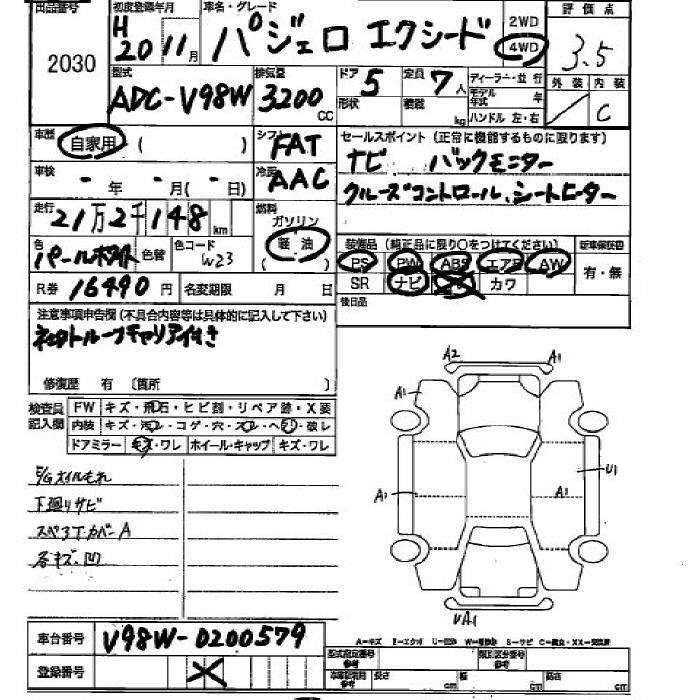 出品番号 初度登録年月 車名・グレード 評価点
2030 H20 11月 パジェロ エクシード 2WD 4WD 3.5
型式 排気量 ドア 5 定員 7人 ディーラー・並行 外装 内装
ADC-V98W 3200cc 形状 積載 kg モデル年式 年 C
ハンドル 左・右
車歴 自家用 ( ) シフト FAT セールスポイント (正常に機能するものに限ります)
車検 - 年 - 月 ( - 日) 冷房 AAC ナビ バックモニター
クルーズコントロール、シートヒーター
走行 21万2千148km 燃料 ガソリン
軽油
( )
色 パールホワイト 色替 色コード W23
装備品 (純正品に限り○をつけてください) 新車保証書
PS PW ABS エアB AW 有・無
SR ナビ カワ
R券 16490円 名変期限 月 日 後日品
注意事項申告欄 (不具合内容等は具体的に記入して下さい)
修復歴 有 (箇所 )
検査員記入欄 FW キズ・飛石・ヒビ割・リペア跡・X要
内装 キズ・汚レ・コゲ・穴・スレ・ヘラリ・破レ
ドアミラー キズ・ワレ ホイール・キャップ キズ・ワレ
E/Gオイルもれ
下廻りサビ
スペアT.カバーA
各キズ・凹
A2 A1
A1
A1 A1 U1
UA1
車台番号 V98W-0200579
登録番号 X
型式指定番号 参考 類別区分番号 参考
冷車記載用 参考 長さ cm 幅 cm 高さ cm